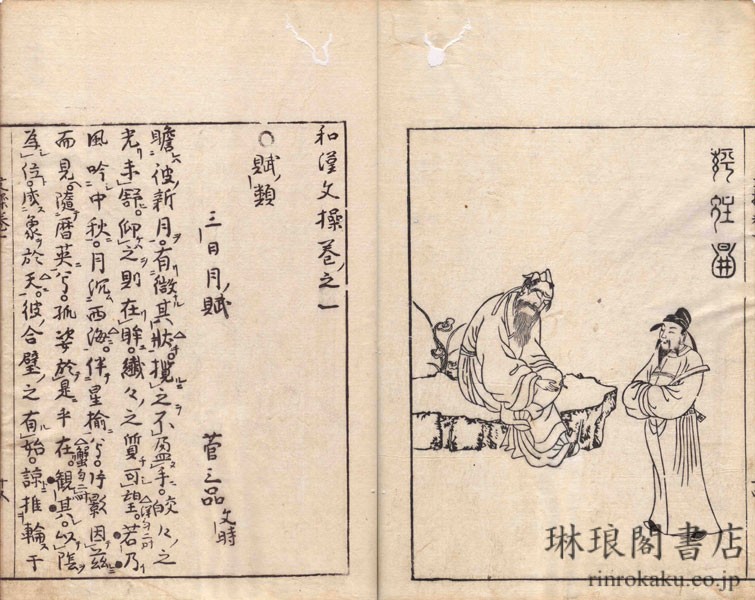 和漢文操巻之一
○賦類
三日月賦
菅三品文時
瞻彼新月。有微其状。攬之不盈手。皎々之
光未舒。仰之則在眸。纖々之質可望。若乃
風吟中秋。月沉西海。伴星楡兮。片影因茲
而見。隨暦英兮。孤姿於是乎在。観其以陰
為位。成象於天。彼合璧之有始。諒推輪于
琳琅閣書店
rinrokaku.co.jp